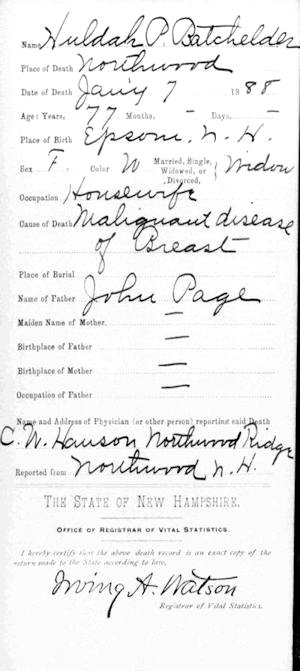 Name Huldah P. Batchelder
Place of Death Northwood
Date of Death Jan'y 7 1888
Age: Years, 77 Months, - Days, -
Place of Birth Epsom, N. H.
Sex F. Color W Married, Single, Widowed, or Divorced, } Widow
Occupation Housewife
Cause of Death Malignant disease
of Breast
Place of Burial
Name of Father John Page
Maiden Name of Mother —
Birthplace of Father —
Birthplace of Mother —
Occupation of Father —
Name and Address of Physician (or other person) reporting said Death
C. W. Hanson Northwood Ridge
Reported from Northwood N. H.
THE STATE OF NEW HAMPSHIRE.
OFFICE OF REGISTRAR OF VITAL STATISTICS.
I hereby certify that the above death record is an exact copy of the
return made to the State according to law.
Irving A. Watson
Registrar of Vital Statistics.